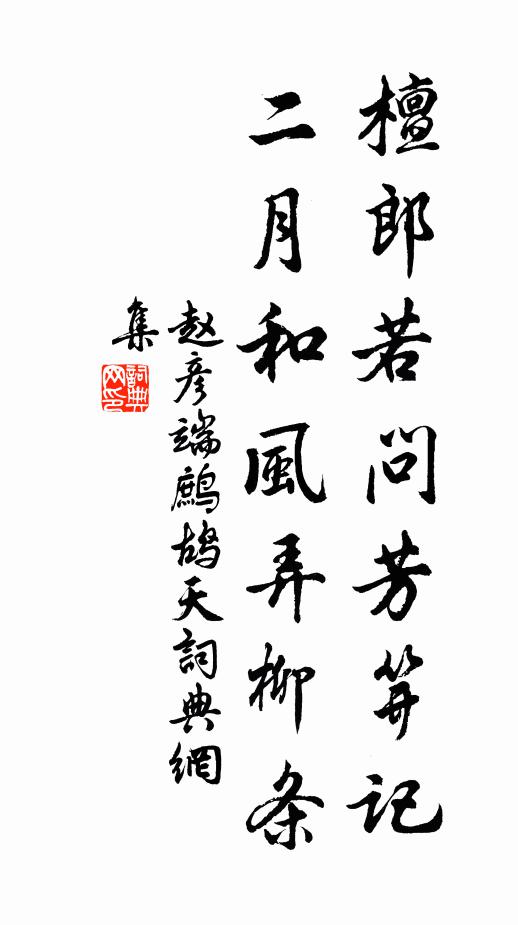 檀郎若问芳笄记
二月和風弄柳条
赵彦端鷓鴣天詞典網
集
詞典
网印